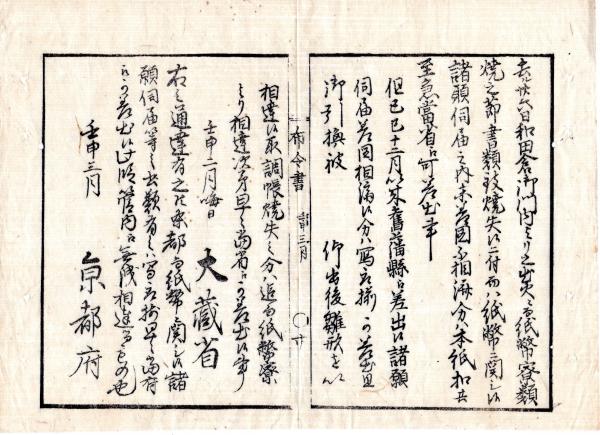 去廿六日和田倉御門内ヨリ之出火ニ而紙幣寮類
焼之節書類被焼失候ニ付而ハ紙幣ニ関シ候
諸願伺届之内未差図不相済分ハ本紙扣共
至急當省江可差出事
但己巳十二月以来舊藩縣ゟ差出候諸願
伺届差図相済候分ハ写取揃可差出且
御引換被 仰出後雛形を以
布令書 壬申三月
相達候取調帳焼失之分ハ追而紙幣寮
ヨリ相達次第早々当省江可差出候事
壬申二月晦日 大蔵省
右之通達有之候条都而紙幣ニ関シ候諸
願伺届等之書類有之ハ写取揃早々当府
江可差出候此旨管内江無洩相達るもの也
壬申三月 京都府